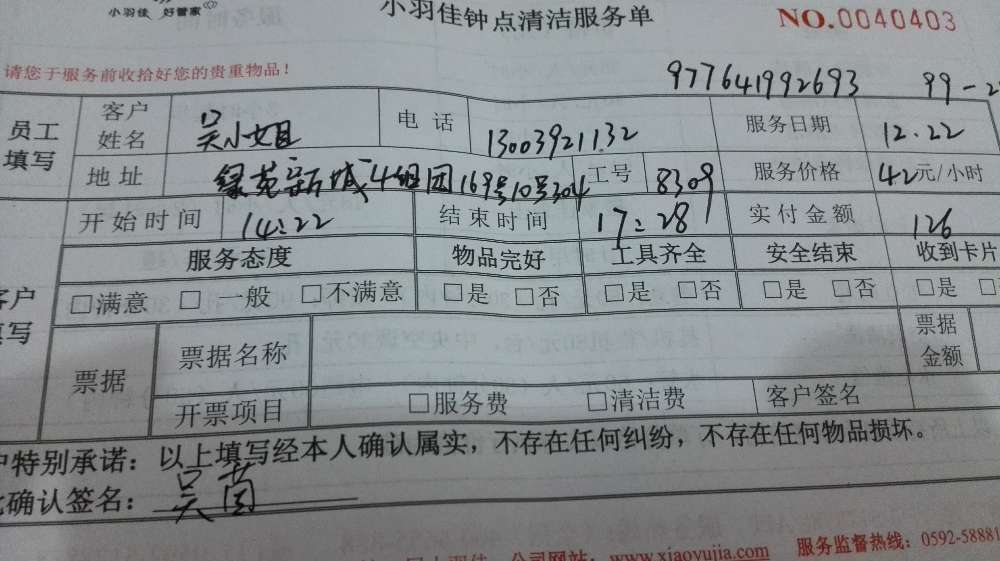 小羽佳 好管家
小羽佳钟点清洁服务单
NO.0040403
请您于服务前收拾好您的贵重物品！
977641992693 99-2
员工填写 客户姓名 吴小姐 电话 13003921132 服务日期 12.22
地址 绿苑新城4组团169号10号304 工号 8309 服务价格 42元/小时
开始时间 14:22 结束时间 17:28 实付金额 126
服务态度 物品完好 工具齐全 安全结束 收到卡片
□满意 □一般 □不满意 □是 □否 □是 □否 □是 □否 □是
票据 票据名称 票据金额
开票项目 □服务费 □清洁费 客户签名
特别承诺：以上填写经本人确认属实，不存在任何纠纷，不存在任何物品损坏。
确认签名：吴茵
公司网站：www.xiaoyujia.com 服务监督热线：0592-58881